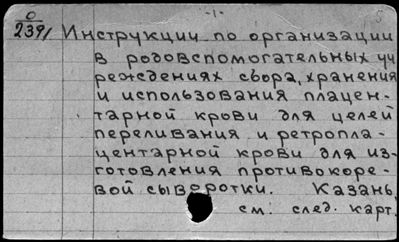 -1-
0
2391
Инструкции по организации
в родовспомогательных уч
реждениях сбора, хранения
и использования плацен-
тарной крови для целей
переливания и ретропла-
центарной крови для из-
готовления противокоре-
вой сыворотки. Казань,
см. след. карт.